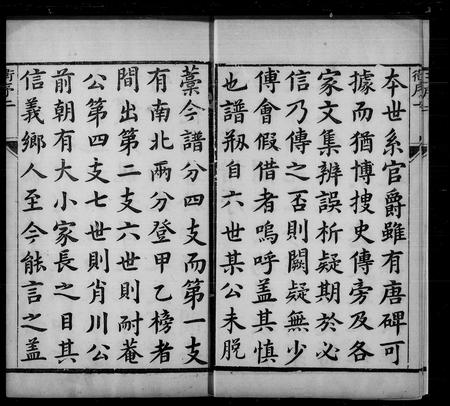 本世系官爵雖有唐碑可
據而猶博搜史傳旁及各
家文集辨誤析疑期於必
信乃傳之否則闕疑無少
傳會假借者嗚呼蓋其慎
也譜剏自六世某公未脫
藳今譜分四支而第一支
有南北兩分登甲乙榜者
間出第二支六世則耐菴
公第四支七世則肖川公
前朝有大小家長之目其
信義鄉人至今能言之蓋